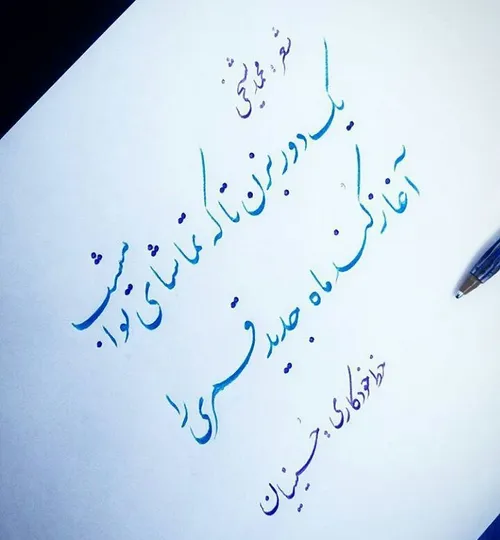 شعر: محمد شیخی
یک دور بزن تا که تماشای تو امشب
آغاز کُند ماه جدید قمری را
خط خودکاری: حُسینیان